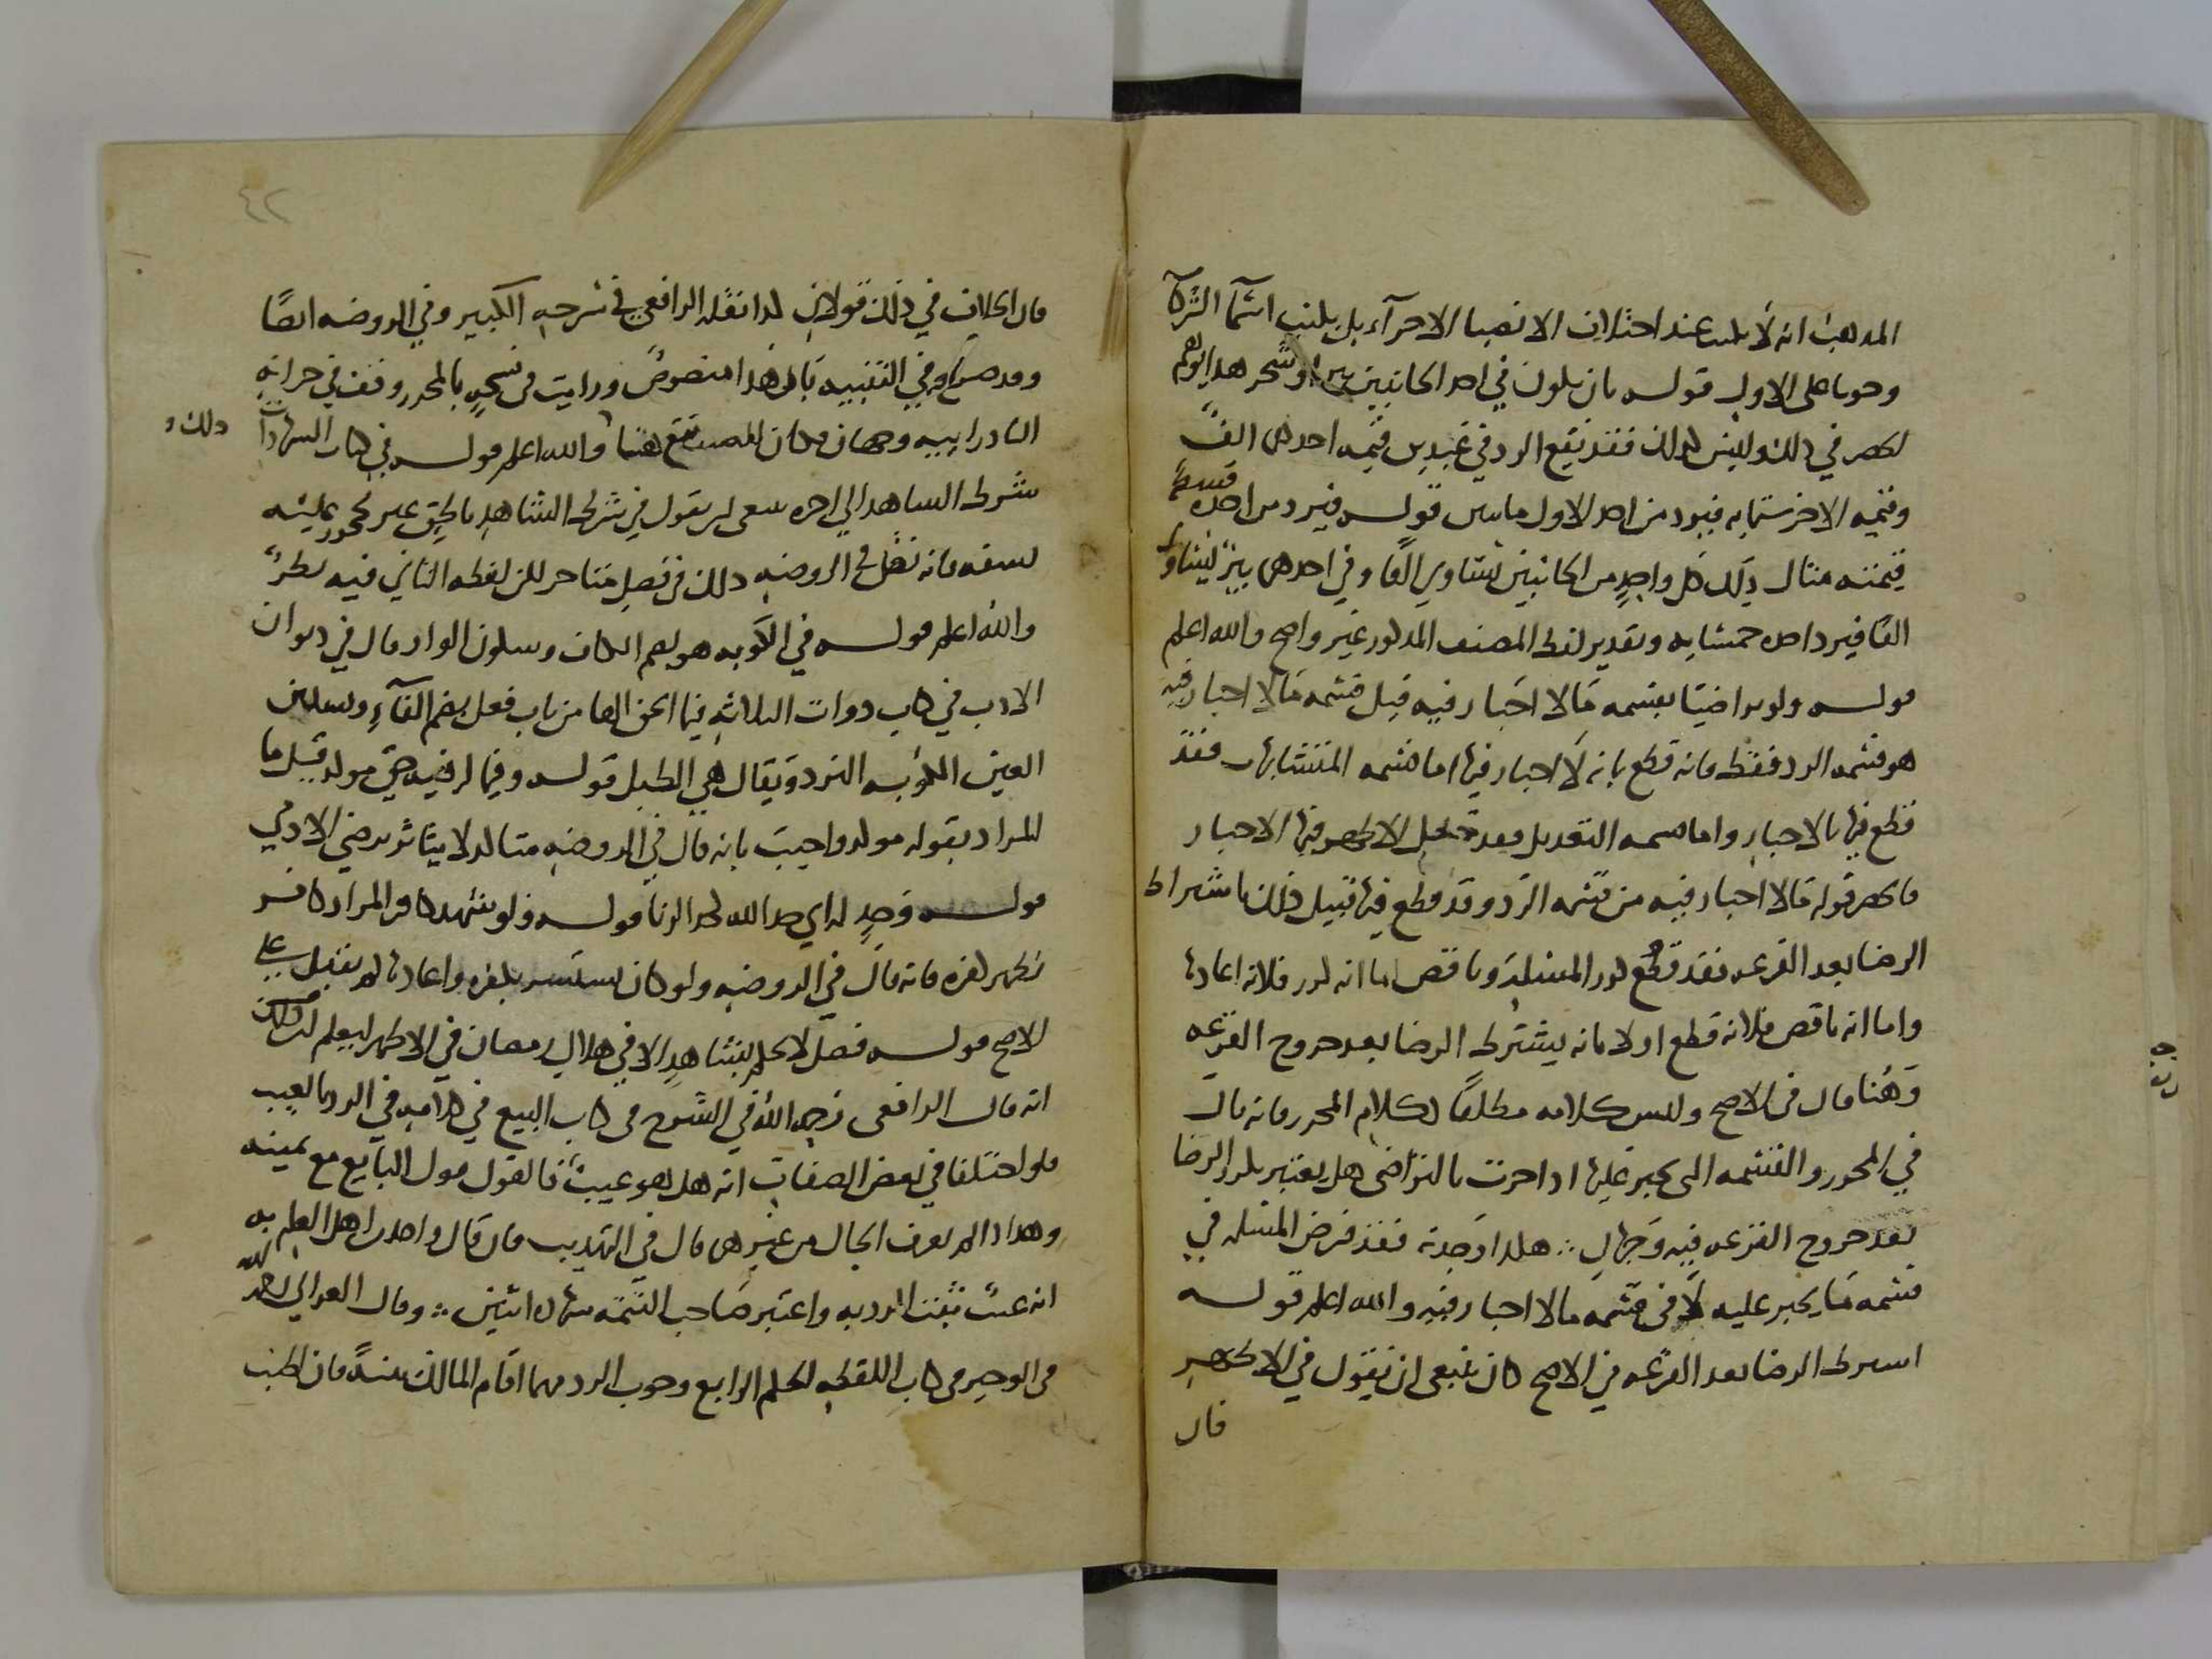 المذهب انه لا يكتب عند اختلاف الانصبا الاجزآء بل يكتب اسمآ الشركآ
وجوبا على الاول قوله بان يكون في احد الجانبين بير او شجر هذا يوهم
الحصر في ذلك وليس كذلك فقد يقع الرد في عبدين قيمه احدهما الف
وقيمه الاخر ستمايه فيرد من اخذ الاول مايتين قوله فيرد من اخذه قسط
قيمته مثال ذلك كل واحد من الجانبين يساوي الفا وفي احدهما بير يساوي
الفا فيرد اخذه خمسمايه وتقدير لفظ المصنف المذكور غير واضح والله اعلم
قوله ولو تراضيا بقسمه ما لا اجبار فيه قيل قسمه ما لا اجبار فيه
هو قسمه الرد فقط فانه قطع بانه لا اجبار فيها اما قسمه المتشابهات فقد
قطع فيها بالاجبار واما قسمه التعديل فقد جعل الاظهر فيها الاجبار
فانحصر قوله ما لا اجبار فيه من قسمه الرد وقد قطع فيها قبيل ذلك باشتراط
الرضا بعد القرعه فقد قطع كرر المسئله وناقض اما انه كرر فلانه اعادها
واما انه ناقض فلانه قطع اولا بانه يشترط الرضا بعد خروج القرعه
وهنا قال في الاصح وليس كلامه مطابقا لكلام المحرر فانه قال
في المحرر والقسمه التي يجبر عليها اذا جرت بالتراضي هل يعتبر تكرر الرضا
بعد خروج القرعه فيه وجهان هكذا وجدته فقد فرض المسئله في
قسمه ما يجبر عليه لا في قسمه ما لا اجبار فيه والله اعلم قوله
اشترط الرضا بعد القرعه في الاصح كان ينبغي ان يقول في الاظهر
فان
٤٢
فان الخلاف في ذلك قولان كذا نقله الرافعي في شرحه الكبير وفي الروضه ايضا
وقد صرح في التنبيه بان هذا منصوص ورايت في نسخه بالمحرر وقف في خزانه
البادرايه وجهان فكان المصنف تبع هنا والله اعلم قوله في كتاب الشهادات
ذلك و
شرط الشاهد الى اخره ينبغي ان يقول في شرط الشاهد ان يكون غير محجور عليه
بسفه فانه نقل في الروضه ذلك في فصل متاخر لكن لفظه الثاني فيه نظر
والله اعلم قوله في الكوبه هو بضم الكاف وسكون الواو قال في ديوان
الادب في كتاب ذوات الثلاثه فيما الحق الها من باب فعل بضم الفآء وتسكين
العين الكوبه النرد ويقال هي الطبل قوله وفيما لرضيه حق موكد قيل ما
المراد بقوله موكد واجيب بانه قال في الروضه متاكد لا يتاثر برضي الادمي
قوله وحد له اي حد الله كحد الزنا قوله ولو شهد كافر المراد كافر
ظهر كفره فانه قال في الروضه ولو كان يستتر بكفره واعادها لم تقبل على
الاصح قوله فصل لا يحكم بشاهد الا في هلال رمضان في الاظهر ليعلم
انه قال الرافعي رحمه الله في الشرح في كتاب البيع في كلامه في الرد بالعيب
ولو اختلفا في بعض الصفات انه هل هو عيب فالقول قول البايع مع يمينه
وهذا اذا لم يعرف الحال من غيرهما قال في التهذيب فان قال واحد من اهل العلم به
انه عيب ثبت الرد به واعتبر صاحب التتمه شهاده اثنين وقال الغزالي رحمه الله
في الوجيز في كتاب اللقطه الحكم الرابع وجوب الرد مهما اقام المالك بينه فان اطنب